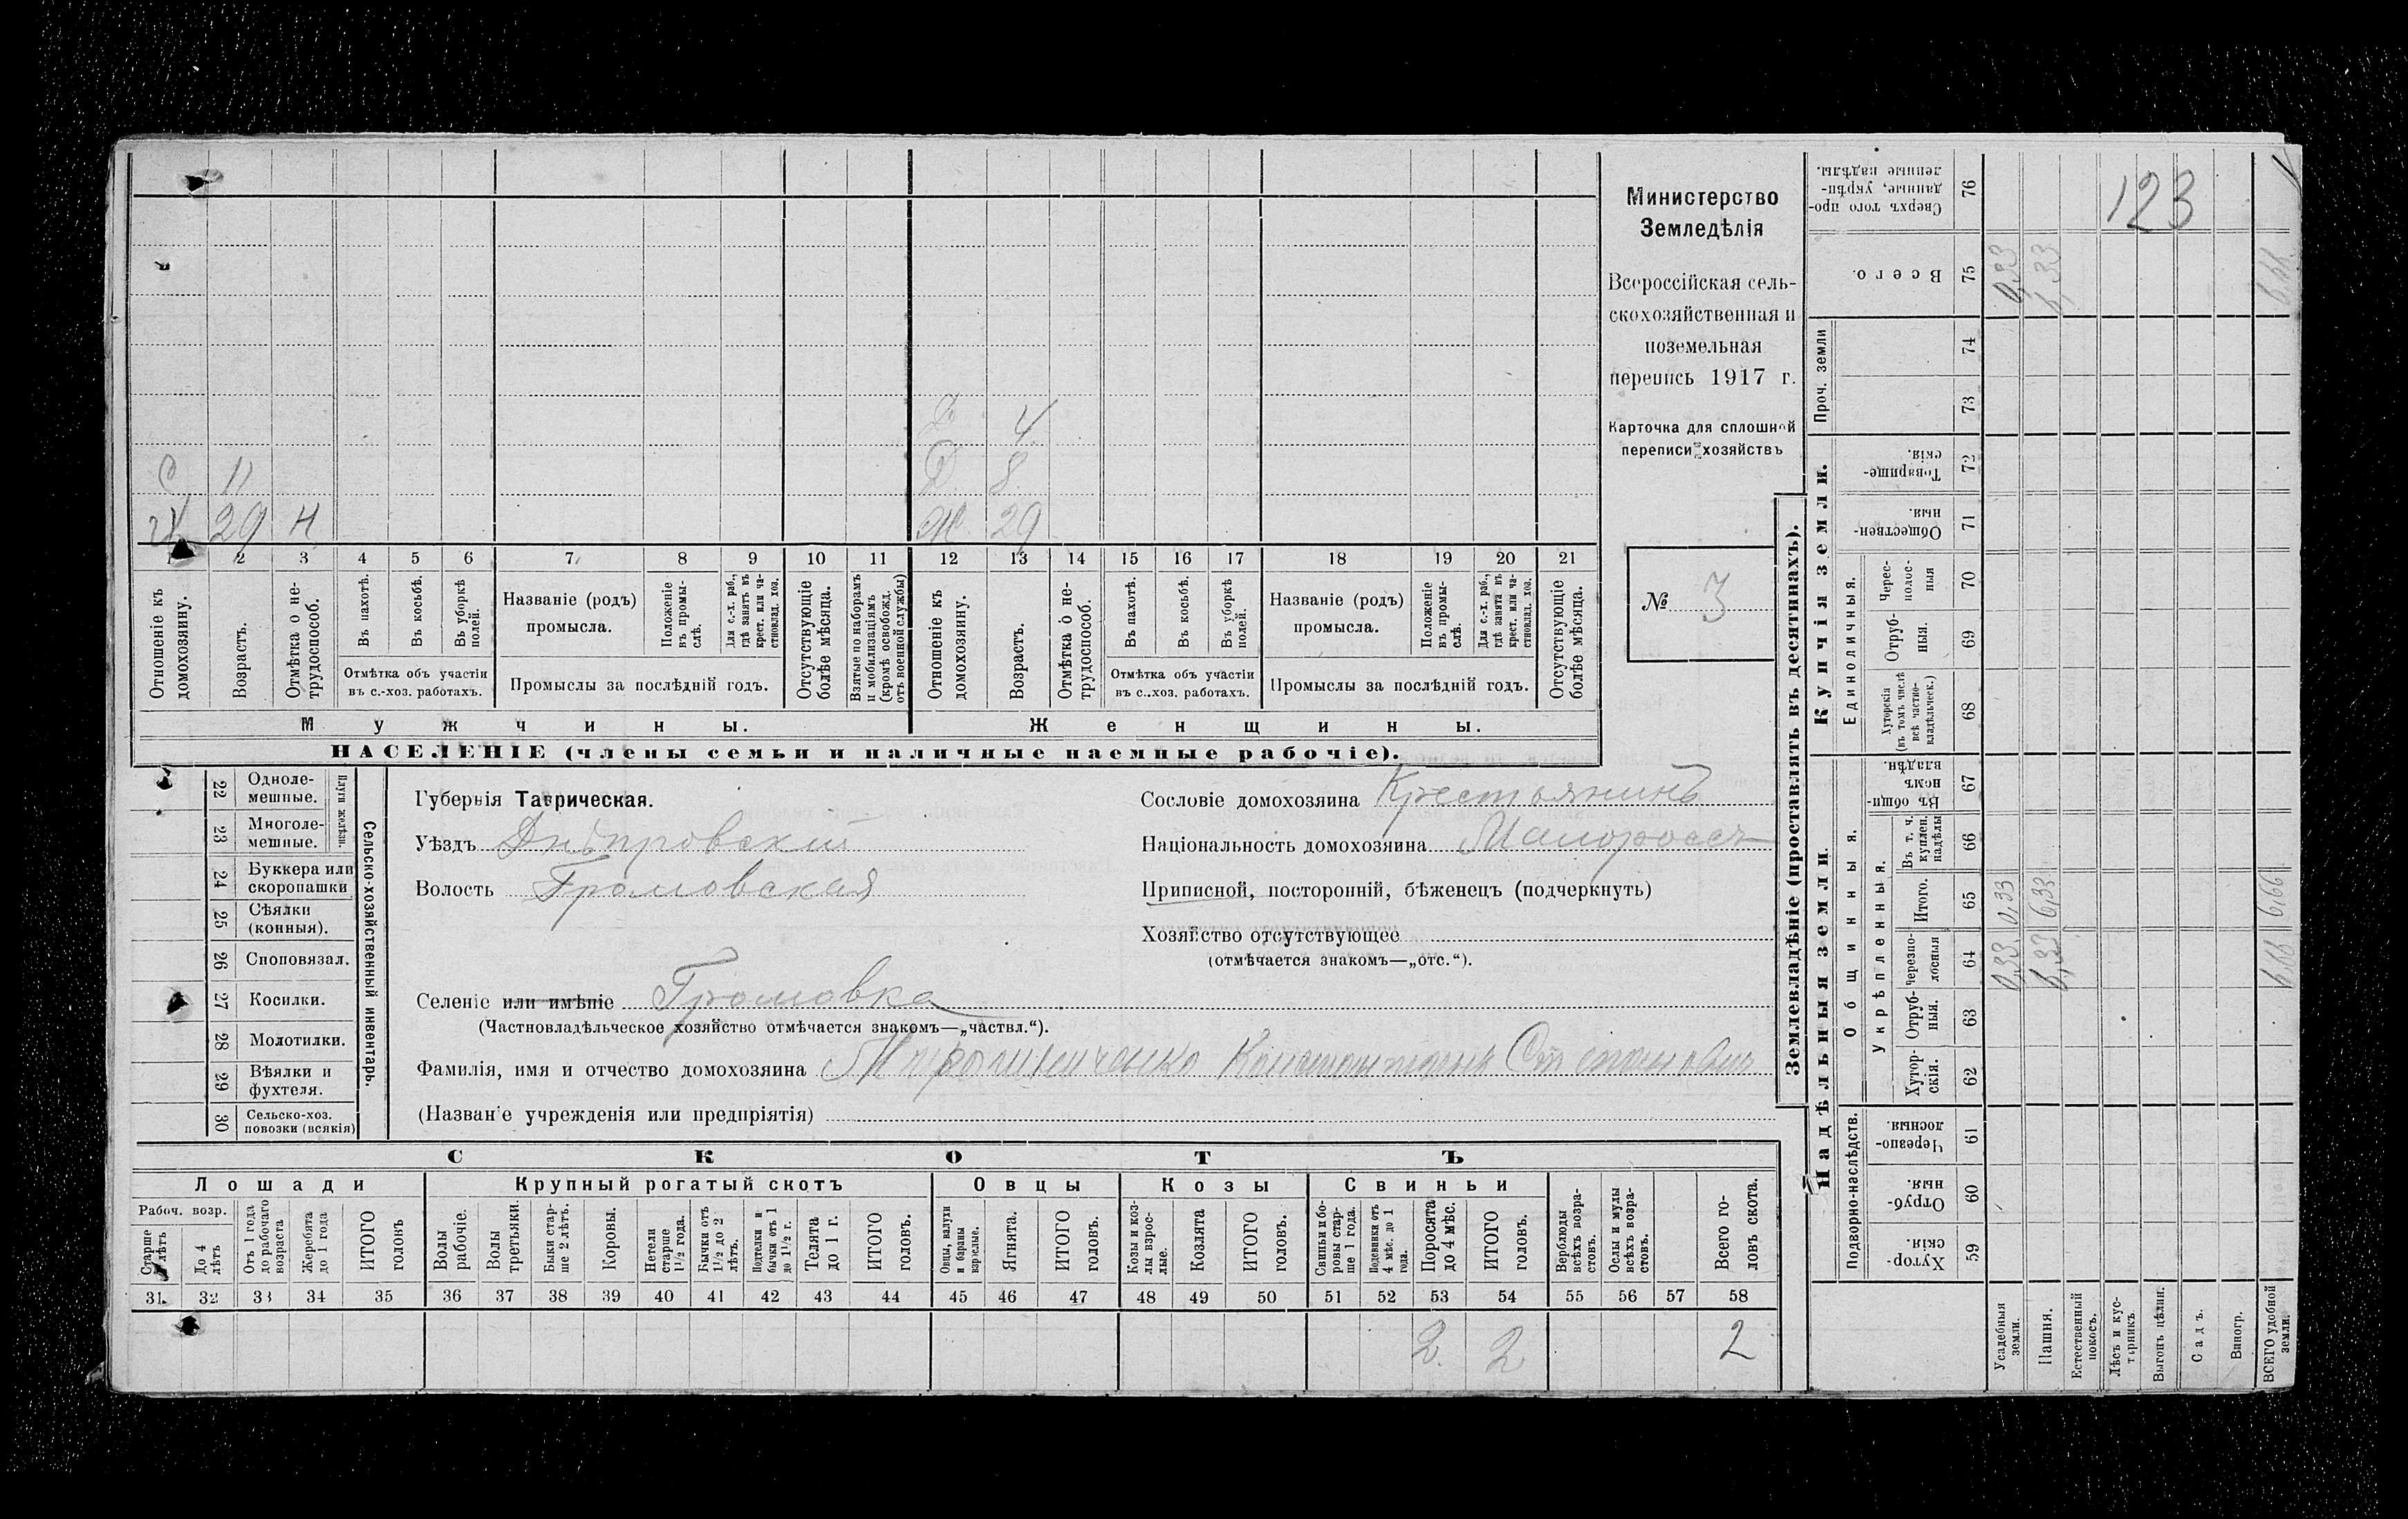 С 11
Х 29 Н
Д 4
Д 8
Ж 29
1 2 3 4 5 6 7 8 9 10 11 12 13 14 15 16 17 18 19 20 21
Отношеніе къ домохозяину.
Возрастъ.
Отмѣтка о не-
трудоспособ.
Въ пахотѣ.
Въ косьбѣ.
Въ уборкѣ полей.
Отмѣтка объ участіи
въ с.-хоз. работахъ.
Названіе (родъ)
промысла.
Положеніе въ промы-
слѣ.
Для с.-х. раб.,
гдѣ занятъ въ
крест. или ча-
стновлад. хоз.
Промыслы за послѣдній годъ.
Отсутствующіе
болѣе мѣсяца.
Взятые по наборамъ
и мобилизаціямъ
(кромѣ освобожд.
отъ военной службы)
Отношеніе къ
домохозяину.
Возрастъ.
Отмѣтка о не-
трудоспособ.
Въ пахотѣ.
Въ косьбѣ.
Въ уборкѣ
полей.
Отмѣтка объ участіи
въ с.-хоз. работахъ.
Названіе (родъ)
промысла.
Положеніе
въ промы-
слѣ.
Для с.-х. раб.,
гдѣ занята въ
крест. или ча-
стновлад. хоз.
Промыслы за послѣдній годъ.
Отсутствующіе
болѣе мѣсяца.
Мужчины. Женщины.
НАСЕЛЕНІЕ (члены семьи и наличные наемные рабочіе).
Министерство
Земледѣлія
Всероссійская сель-
скохозяйственная и
поземельная
перепись 1917 г.
Карточка для сплошной
переписи хозяйствъ
№ 3
22 Одноле-
мешные.
23 Многоле-
мешные.
Плуги желѣзн.
24 Буккера или
скоропашки
25 Сѣялки
(конныя).
26 Сноповязал.
27 Косилки.
28 Молотилки.
29 Вѣялки и
фухтеля.
30 Сельско-хоз.
повозки (всякія)
Сельско-хозяйственный инвентарь.
Губернія Таврическая.
Уѣздъ Днѣпровскій
Волость Громовская
Селеніе или имѣніе Громовка
(Частновладѣльческое хозяйство отмѣчается знакомъ—„частвл.“).
Фамилія, имя и отчество домохозяина Мирошниченко Константинъ
(Названіе учрежденія или предпріятія)
Сословіе домохозяина Крестьянинъ
Національность домохозяина Малороссъ
Приписной, посторонній, бѣженецъ (подчеркнуть)
Хозяйство отсутствующее
(отмѣчается знакомъ—„отс.“).
СКОТЪ
Лошади Крупный рогатый скотъ Овцы Козы Свиньи
Рабоч. возр.
Старше
4 лѣтъ
До 4
лѣтъ
Отъ 1 года
до рабочаго
возраста
Жеребята
до 1 года
ИТОГО
головъ
Волы
рабочіе.
Волы
третьяки.
Быки стар-
ше 2 лѣтъ.
Коровы.
Нетели
старше
1½ года.
Бычки отъ
1½ до 2
лѣтъ.
Подтелки и
бычки отъ 1
до 1½ г.
Телята
до 1 г.
ИТОГО
головъ.
Овцы, валухи
и бараны
взрослые.
Ягнята.
ИТОГО
головъ.
Козы и коз-
лы взрос-
лые.
Козлята
ИТОГО
головъ.
Свиньи и бо-
ровы стар-
ше 1 года.
Подсвинки отъ
4 мѣс. до 1
года.
Поросята
до 4 мѣс.
ИТОГО
головъ.
Верблюды
всѣхъ возра-
стовъ.
Ослы и мулы
всѣхъ возра-
стовъ.
Всего го-
ловъ скота.
31 32 33 34 35 36 37 38 39 40 41 42 43 44 45 46 47 48 49 50 51 52 53 54 55 56 57 58
2 2 2
Землевладѣніе (проставлять въ десятинахъ).
123
76 Сверхъ того про-
данные, укрѣп-
ленные надѣлы.
75 Всего. 0,33 6,33 6,66
Проч. земли
74
73
Купчія земли.
72 Товарище-
скія.
71 Обществен-
ныя.
Единоличныя.
70 Черес-
полос-
ныя
69 Отруб-
ныя.
68 Хуторскія
(въ томъ числѣ
всѣ частно-
владѣльческ.)
Надѣльныя земли
Общинныя.
67 Въ общин-
номъ
владѣн.
Укрѣпленныя.
66 Въ т. ч.
куплен.
надѣлы
65 Итого. 0,33 6,33 6,66
64 черезпо-
лосныя 0,33 6,33 6,66
63 Отруб-
ныя.
62 Хутор-
скія.
Подворно-наслѣдств.
61 Черезпо-
лосныя.
60 Отруб-
ныя.
59 Хутор-
скія.
Усадебныя
земли.
Пашня.
Естественный
покосъ.
Лѣсъ и кус-
тарникъ
Выгонъ цѣлин.
Садъ.
Виногр.
ВСЕГО удобной
земли.